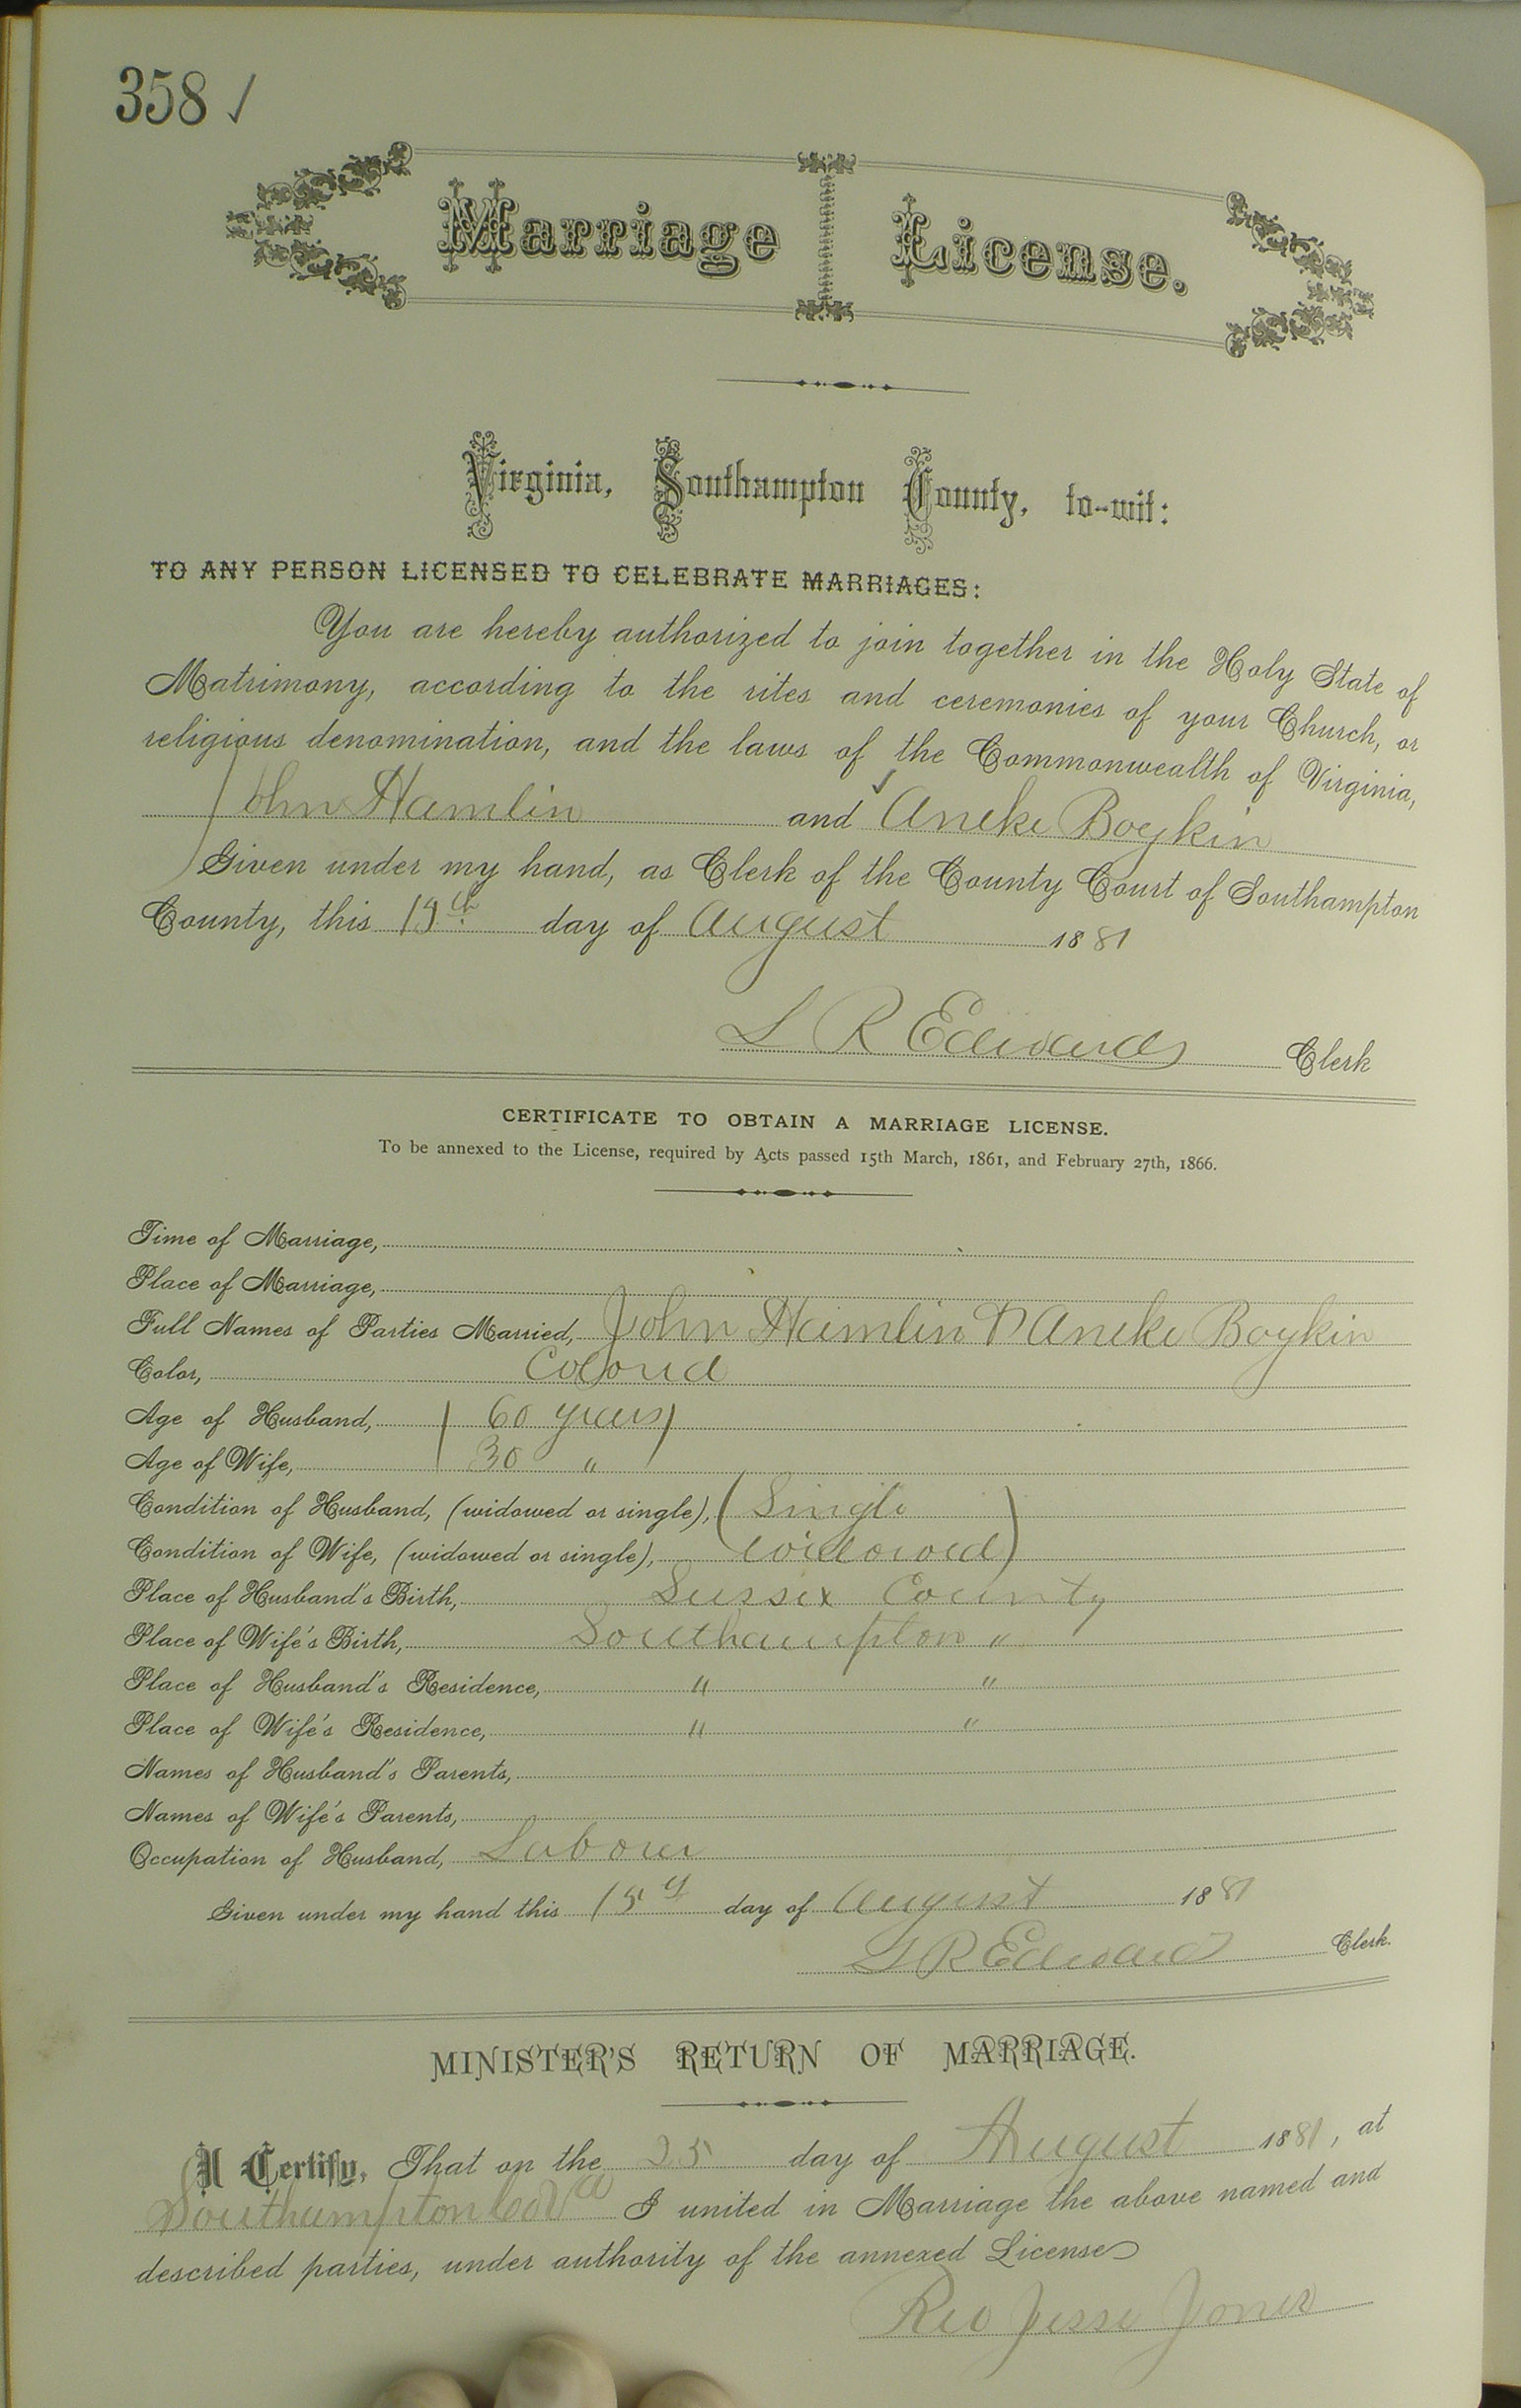 358 ✓
Marriage License.
Virginia, Southampton County, to-wit:
TO ANY PERSON LICENSED TO CELEBRATE MARRIAGES:
You are hereby authorized to join together in the Holy State of
Matrimony, according to the rites and ceremonies of your Church, or
religious denomination, and the laws of the Commonwealth of Virginia,
John Hamlin and Aneke Boykin
Given under my hand, as Clerk of the County Court of Southampton
County, this day of August 1881
L R Edwards Clerk
CERTIFICATE TO OBTAIN A MARRIAGE LICENSE.
To be annexed to the License, required by Acts passed 15th March, 1861, and February 27th, 1866.
Time of Marriage,
Place of Marriage,
Full Names of Parties Married, John Hamlin & Aneke Boykin
Color, Colored
Age of Husband, 60 years
Age of Wife, 30 "
Condition of Husband, (widowed or single), Single
Condition of Wife, (widowed or single), widowed
Place of Husband's Birth, Sussex County
Place of Wife's Birth, Southampton "
Place of Husband's Residence, " "
Place of Wife's Residence, " "
Names of Husband's Parents,
Names of Wife's Parents,
Occupation of Husband, Laborer
Given under my hand this day of August 1881
L R Edwards Clerk.
MINISTER'S RETURN OF MARRIAGE.
I Certify, That on the 25 day of August 1881, at
Southampton Co Va I united in Marriage the above named and
described parties, under authority of the annexed License
Rev Jesse Jones